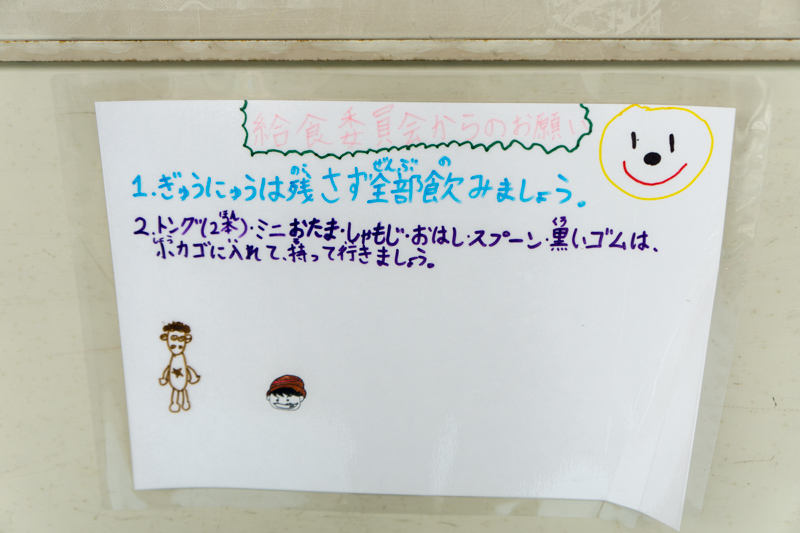 給食委員会からのお願い
1.ぎゅうにゅうは残さず全部飲みましょう。
2.トング(2本)・ミニおたま・しゃもじ・おはし・スプーン・黒いゴムは、
小カゴに入れて、持って行きましょう。